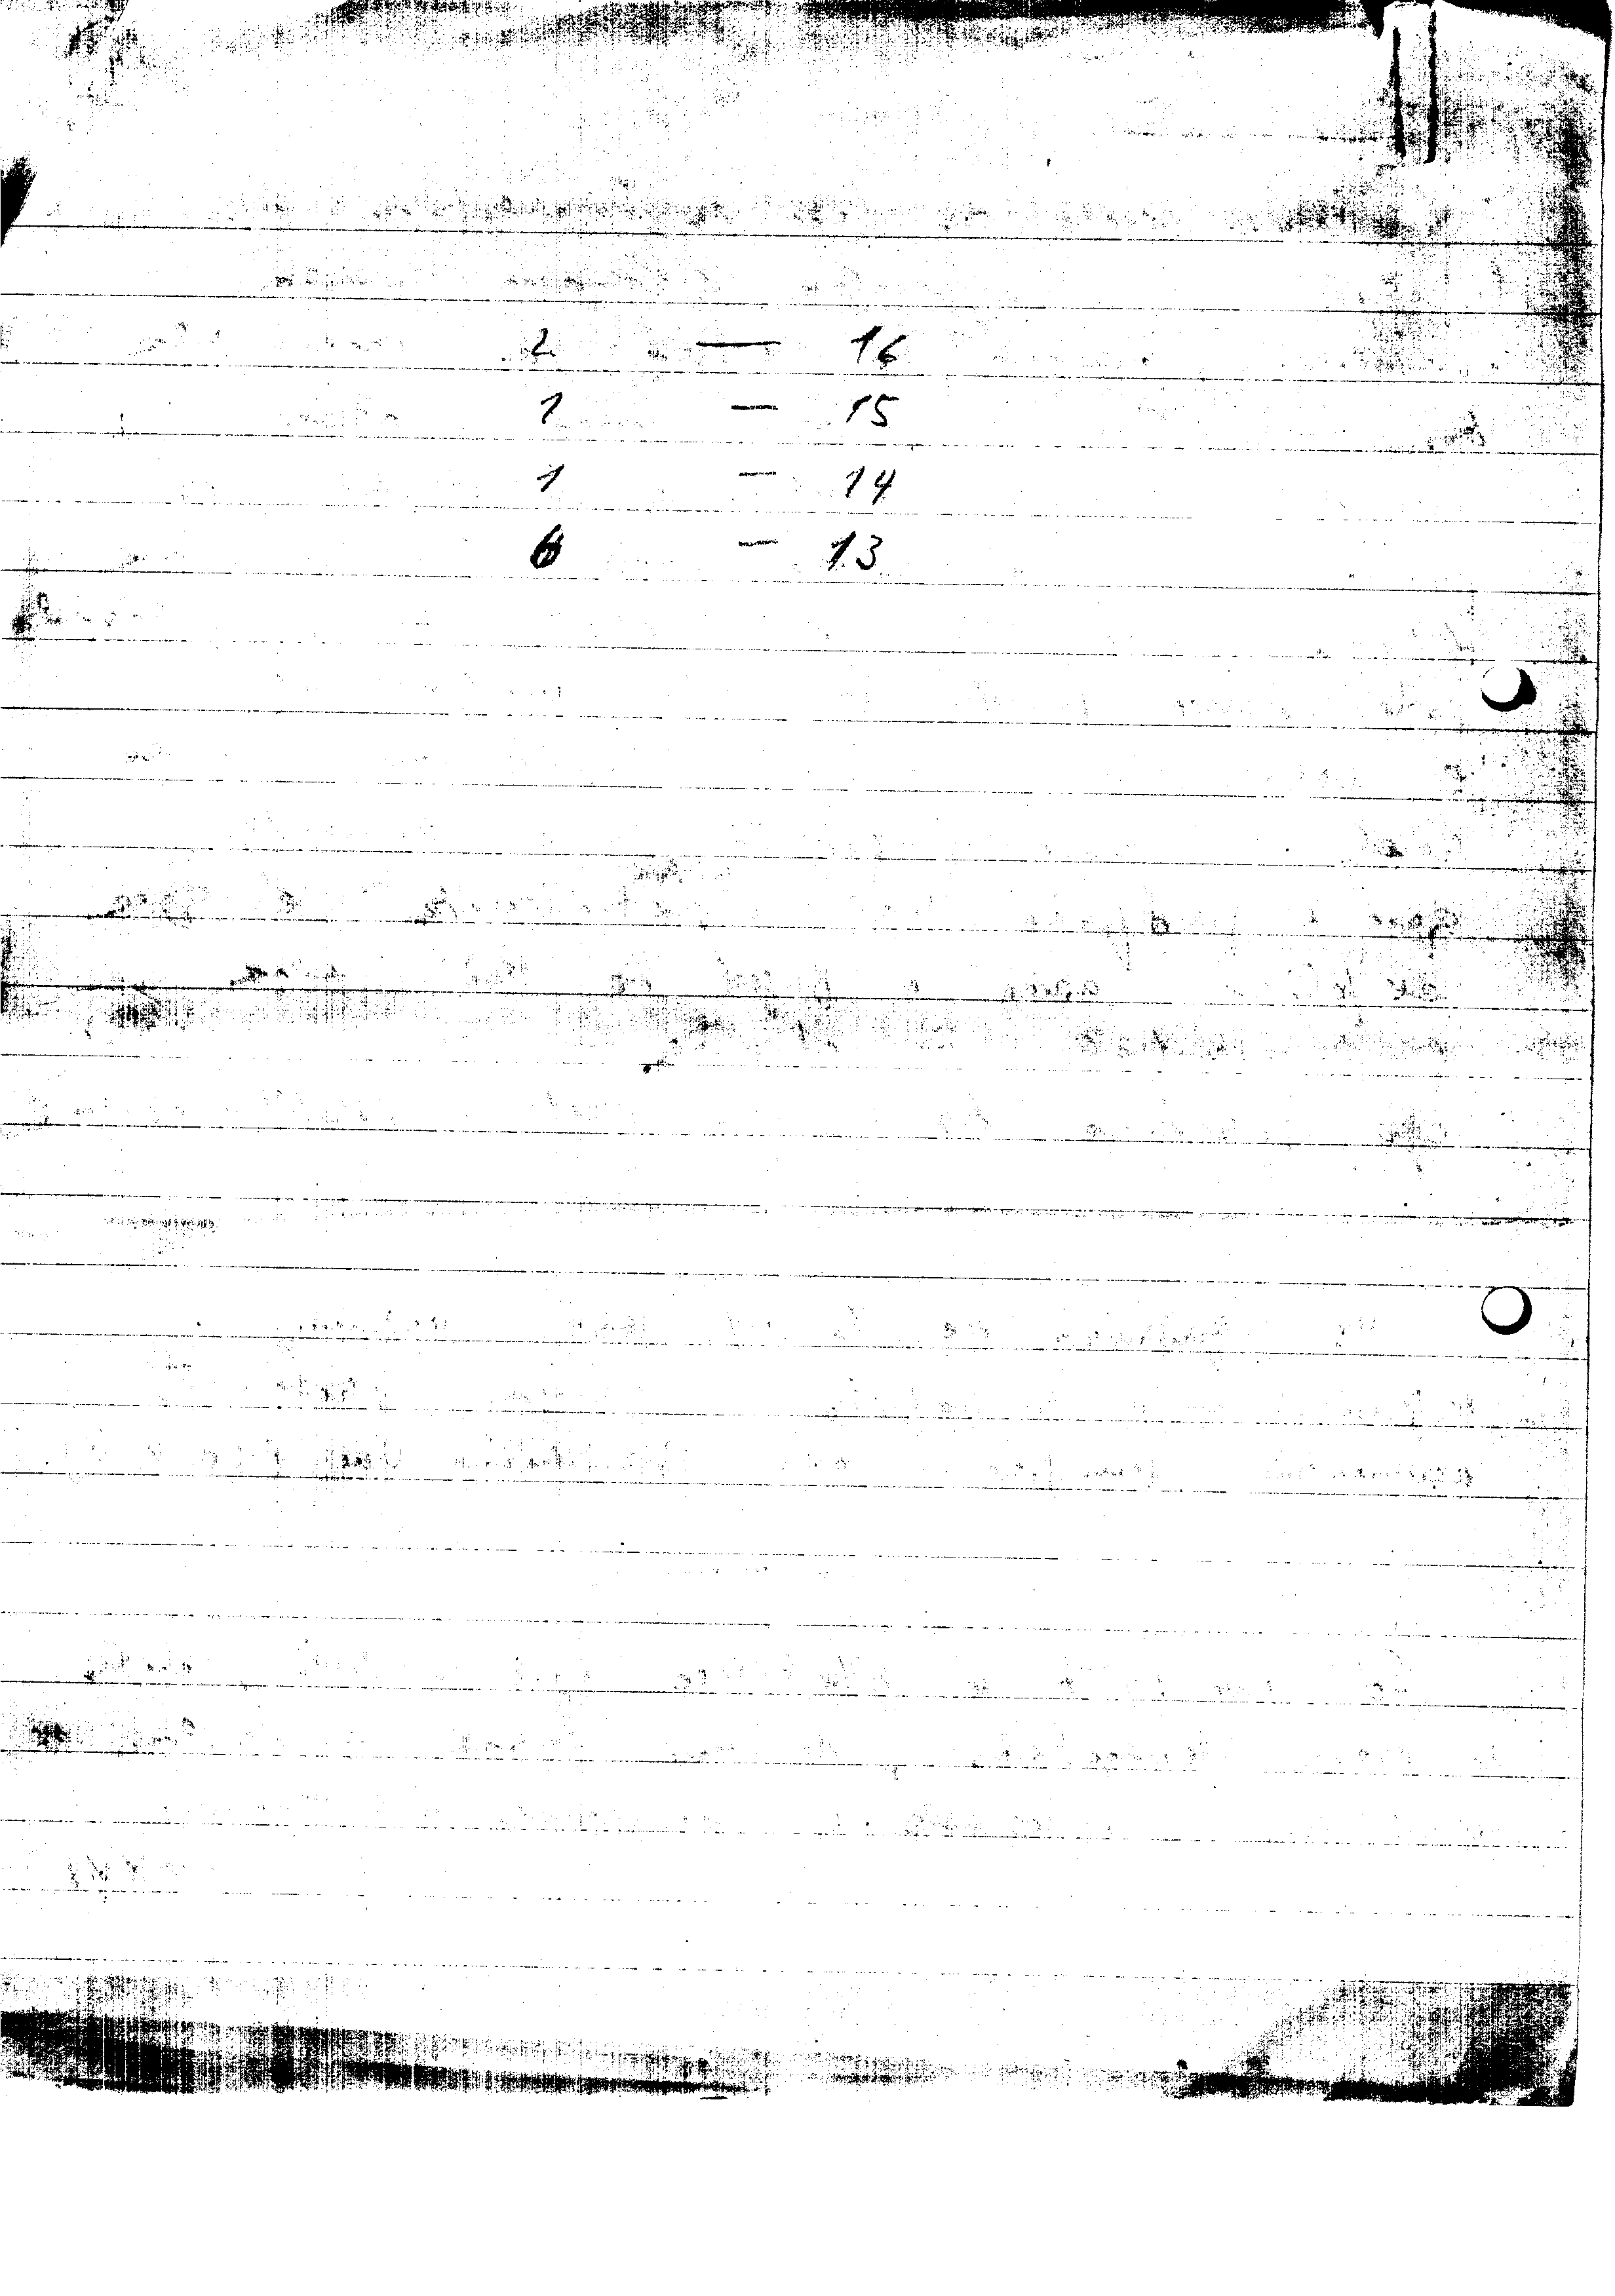 2 — 16
1 — 15
1 — 14
6 — 13